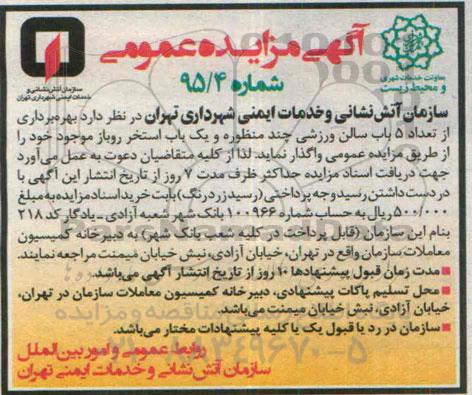 آگهی مزایده عمومی
شماره ۹۵/۴
معاونت خدمات شهری
و محیط زیست
سازمان آتش نشانی و
خدمات ایمنی شهرداری تهران
سازمان آتش نشانی وخدمات ایمنی شهرداری تهران در نظر دارد بهره‌برداری
از تعداد ۵ باب سالن ورزشی چند منظوره و یک باب استخر روباز موجود خود را
از طریق مزایده عمومی واگذار نماید. لذا از کلیه متقاضیان دعوت به عمل می‌آورد
جهت دریافت اسناد مزایده حداکثر ظرف مدت ۷ روز از تاریخ انتشار این آگهی با
در دست داشتن رسید وجه پرداختی (رسید زرد رنگ) بابت خرید اسناد مزایده به مبلغ
۵۰۰/۰۰۰ ریال به حساب شماره ۱۰۰۹۶۶ بانک شهر شعبه آزادی ـ یادگار کد ۲۱۸
بنام این سازمان (قابل پرداخت در کلیه شعب بانک شهر) به دبیرخانه کمیسیون
معاملات سازمان واقع در تهران، خیابان آزادی، نبش خیابان میمنت مراجعه نمایند.
■ مدت زمان قبول پیشنهادها ۱۰ روز از تاریخ انتشار آگهی می‌باشد.
■ محل تسلیم پاکات پیشنهادی، دبیرخانه کمیسیون معاملات سازمان در تهران،
خیابان آزادی، نبش خیابان میمنت می‌باشد.
■ سازمان در رد یا قبول یک یا کلیه پیشنهادات مختار می‌باشد.
روابط عمومی و امور بین‌الملل
سازمان آتش نشانی و خدمات ایمنی تهران